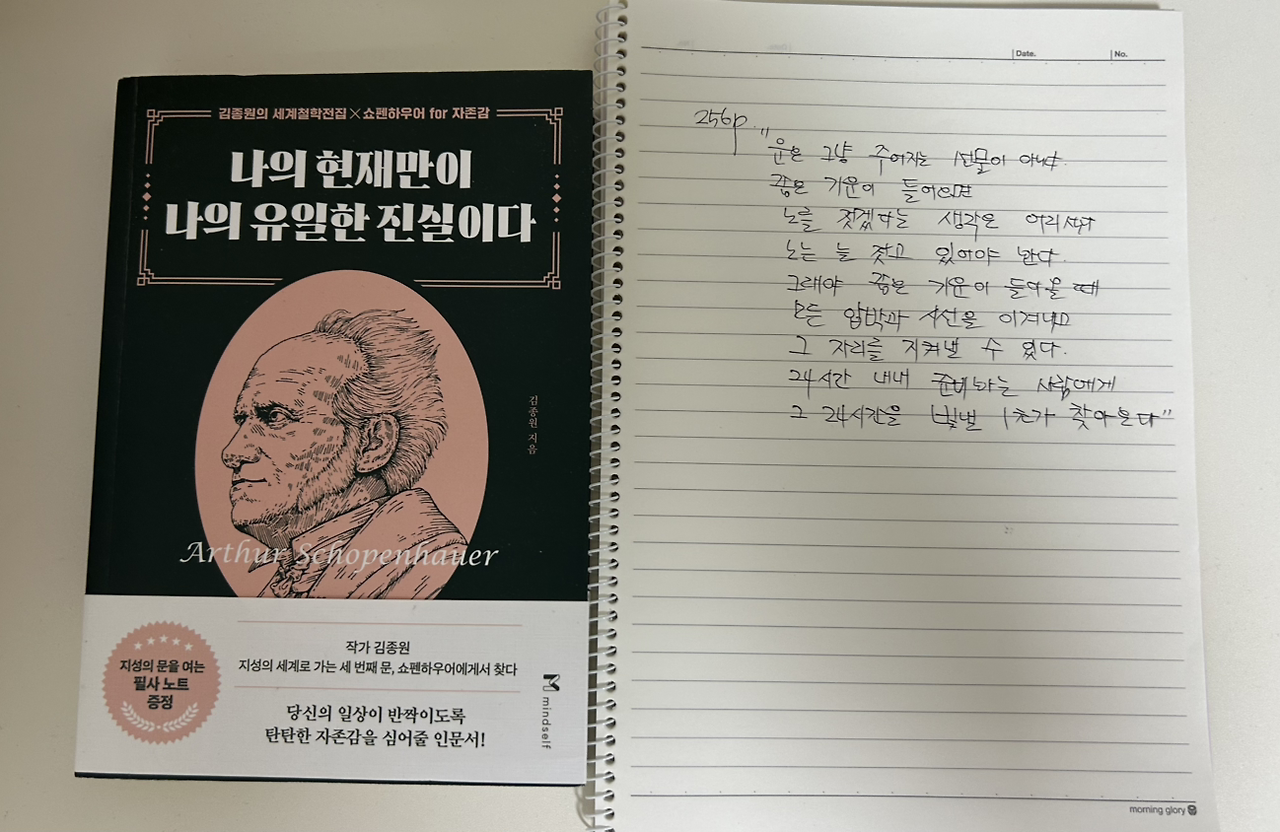 김종원의 세계철학전집×쇼펜하우어 for 자존감
나의 현재만이
나의 유일한 진실이다
김종원 지음
Arthur Schopenhauer
지성의 문을 여는
필사 노트
증정
작가 김종원
지성의 세계로 가는 세 번째 문, 쇼펜하우어에게서 찾다
당신의 일상이 반짝이도록
탄탄한 자존감을 심어줄 인문서!
mindself
Date.
No.
256p.
"운은 그냥 주어지는 선물이 아냐.
좋은 기운이 들어오면
노를 젓겠다는 생각은 어리석다
노는 늘 젓고 있어야 한다.
그래야 좋은 기운이 들어올 때
모든 압박과 시선을 이겨내고
그 자리를 지켜낼 수 있다.
24시간 내내 준비하는 사람에게
그 24시간을 빛낼 1초가 찾아온다"
morning glory